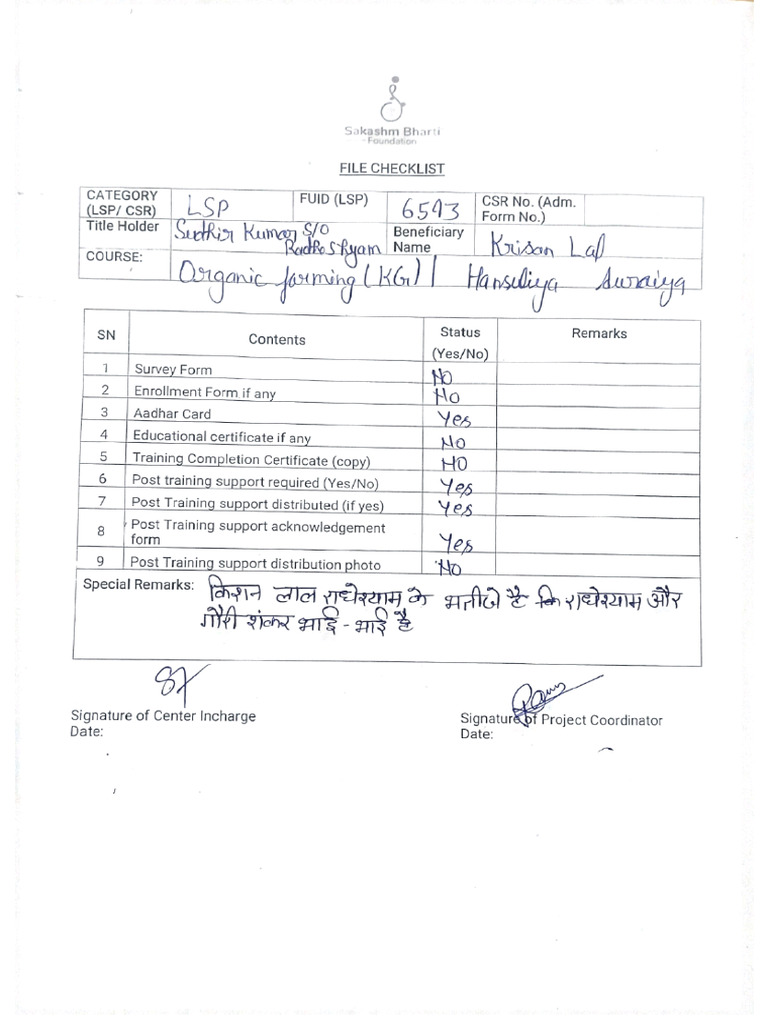 Sakashm Bharti
-Foundation
FILE CHECKLIST
CATEGORY (LSP/ CSR) LSP FUID (LSP) 6593 CSR No. (Adm. Form No.)
Title Holder Sudhir Kumar S/O Radhe Shyam Beneficiary Name Krisan Lal
COURSE: Organic farming (KG) | Hansuliya Suraiya
SN Contents Status (Yes/No) Remarks
1 Survey Form No
2 Enrollment Form if any No
3 Aadhar Card Yes
4 Educational certificate if any No
5 Training Completion Certificate (copy) NO
6 Post training support required (Yes/No) Yes
7 Post Training support distributed (if yes) Yes
8 Post Training support acknowledgement form Yes
9 Post Training support distribution photo No
Special Remarks: किशन लाल राधेश्याम के भतीजे है कि राधेश्याम और
गौरी शंकर भाई - भाई है
Signature of Center Incharge
Date:
Signature of Project Coordinator
Date: